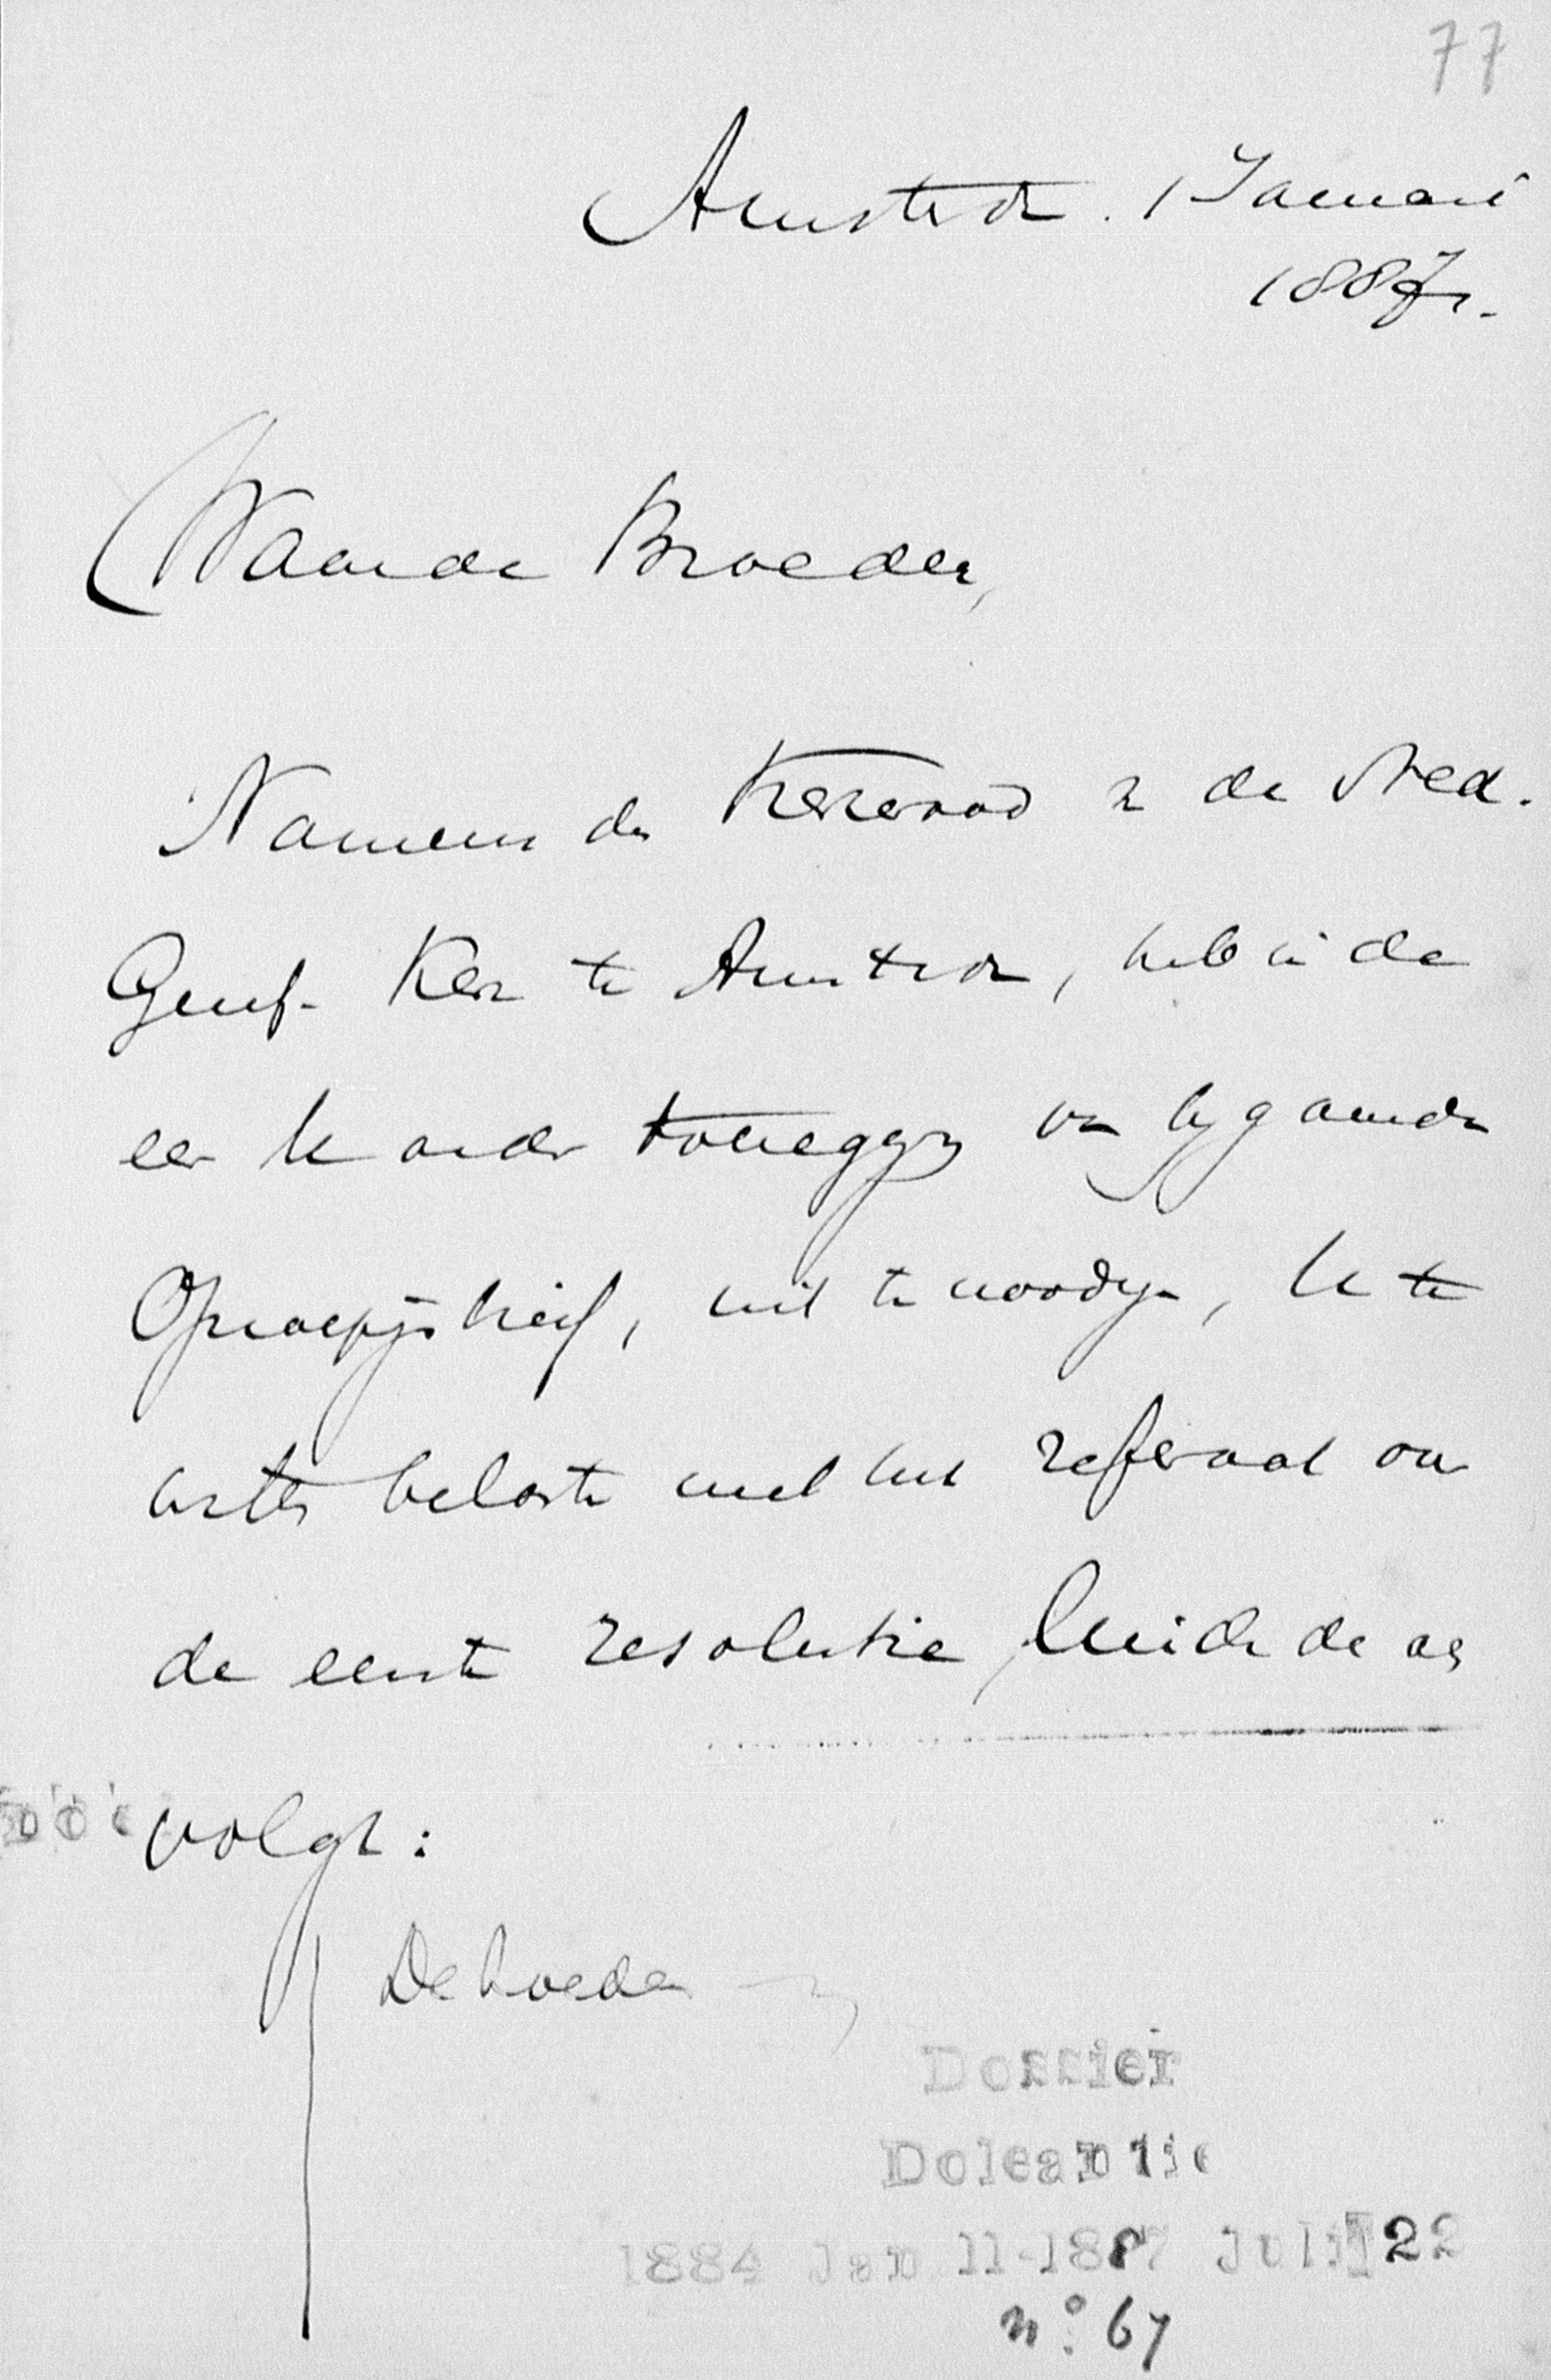 77
Amsterdam. 1 Januari
1887.
Waarde Broeder,
Namens den Kerkeraad van de Ned.
Geref. Kerk te Amsterdam, heb ik de
eer U onder toevoeging van bijgaanden
Oproepingsbrief, uit te noodigen, U te
willen belasten met het referaat over
de eerste resolutie, luidende als
volgt:
De broeders
Dossier
Doleantie
1884 Jan 11-1887 Juli 22
no: 67